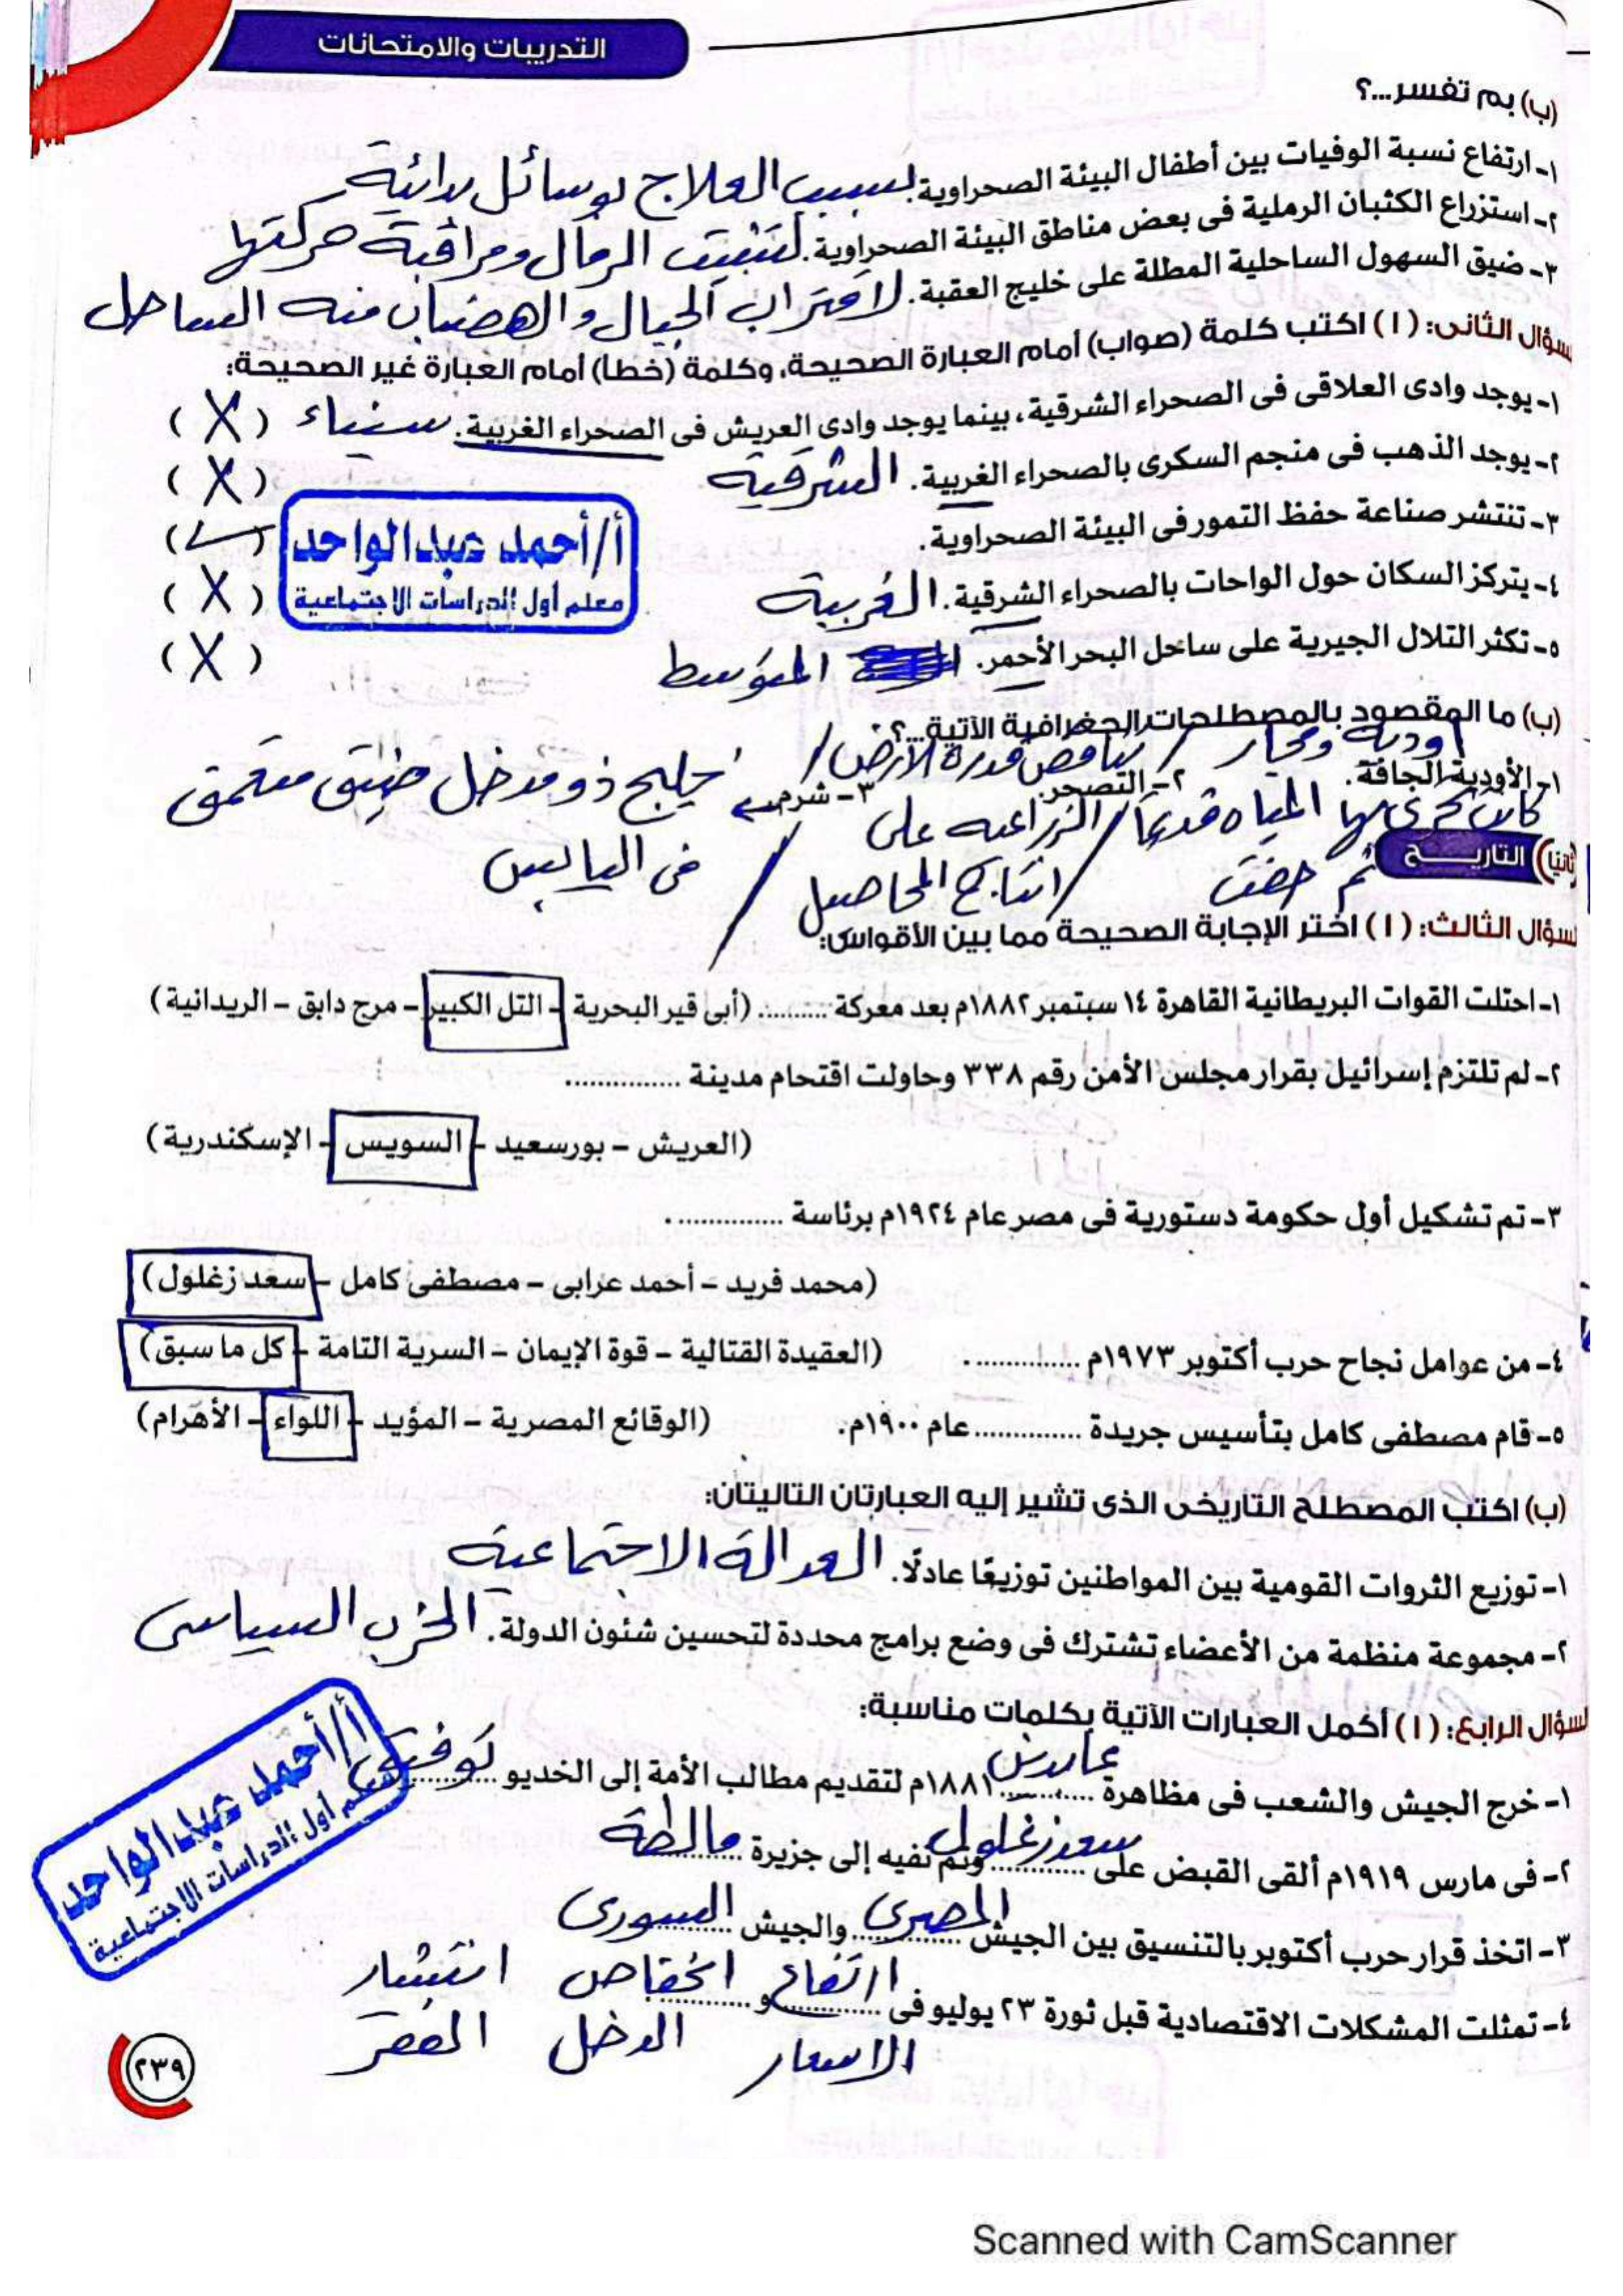 التدريبات والامتحانات
(ب) بم تفسر...؟
١- ارتفاع نسبة الوفيات بين أطفال البيئة الصحراوية. بسبب العلاج بوسائل بدائية
٢- استزراع الكثبان الرملية فى بعض مناطق البيئة الصحراوية. لتثبيت الرمال ومراقبة حركتها
٣- ضيق السهول الساحلية المطلة على خليج العقبة. لاقتراب الجبال والهضاب من الساحل
سؤال الثانى: (ا) اكتب كلمة (صواب) أمام العبارة الصحيحة، وكلمة (خطأ) أمام العبارة غير الصحيحة:
١- يوجد وادى العلاقى فى الصحراء الشرقية، بينما يوجد وادى العريش فى الصحراء الغربية. سيناء (X)
٢- يوجد الذهب فى منجم السكرى بالصحراء الغربية. الشرقية (X)
٣- تنتشر صناعة حفظ التمور فى البيئة الصحراوية. (✓)
أ/أحمد عبدالواحد
معلم أول الدراسات الاجتماعية
٤- يتركز السكان حول الواحات بالصحراء الشرقية. الغربية (X)
٥- تكثر التلال الجيرية على ساحل البحر الأحمر. المتوسط (X)
(ب) ما المقصود بالمصطلحات الجغرافية الآتية...؟
١- الأودية الجافة. ٢- التصحر. ٣- شرم.
أودية ومجار كانت تجرى بها المياه قديماً ثم جفت
تناقص قدرة الأرض الزراعية على إنتاج المحاصيل
خليج ذو مدخل ضيق متعمق فى اليابس
ثانيًا) التاريخ
سؤال الثالث: (ا) اختر الإجابة الصحيحة مما بين الأقواس:
١- احتلت القوات البريطانية القاهرة ١٤ سبتمبر ١٨٨٢م بعد معركة .......... (أبى قير البحرية – التل الكبير – مرج دابق – الريدانية)
٢- لم تلتزم إسرائيل بقرار مجلس الأمن رقم ٣٣٨ وحاولت اقتحام مدينة ..............
(العريش – بورسعيد – السويس – الإسكندرية)
٣- تم تشكيل أول حكومة دستورية فى مصر عام ١٩٢٤م برئاسة ..............
(محمد فريد – أحمد عرابى – مصطفى كامل – سعد زغلول)
٤- من عوامل نجاح حرب أكتوبر ١٩٧٣م .............. (العقيدة القتالية – قوة الإيمان – السرية التامة – كل ما سبق)
٥- قام مصطفى كامل بتأسيس جريدة .............. عام ١٩٠٠م. (الوقائع المصرية – المؤيد – اللواء – الأهرام)
(ب) اكتب المصطلح التاريخى الذى تشير إليه العبارتان التاليتان:
١- توزيع الثروات القومية بين المواطنين توزيعًا عادلًا. العدالة الاجتماعية
٢- مجموعة منظمة من الأعضاء تشترك فى وضع برامج محددة لتحسين شئون الدولة. الحزب السياسى
لسؤال الرابع: (ا) أكمل العبارات الآتية بكلمات مناسبة:
١- خرج الجيش والشعب فى مظاهرة عابدين ١٨٨١م لتقديم مطالب الأمة إلى الخديو توفيق
٢- فى مارس ١٩١٩م ألقى القبض على سعد زغلول وتم نفيه إلى جزيرة مالطة
٣- اتخذ قرار حرب أكتوبر بالتنسيق بين الجيش المصرى والجيش السورى
٤- تمثلت المشكلات الاقتصادية قبل ثورة ٢٣ يوليو فى ارتفاع الاسعار و انخفاض الدخل انتشار الفقر
أ/أحمد عبدالواحد
معلم أول الدراسات الاجتماعية
٢٣٩
Scanned with CamScanner